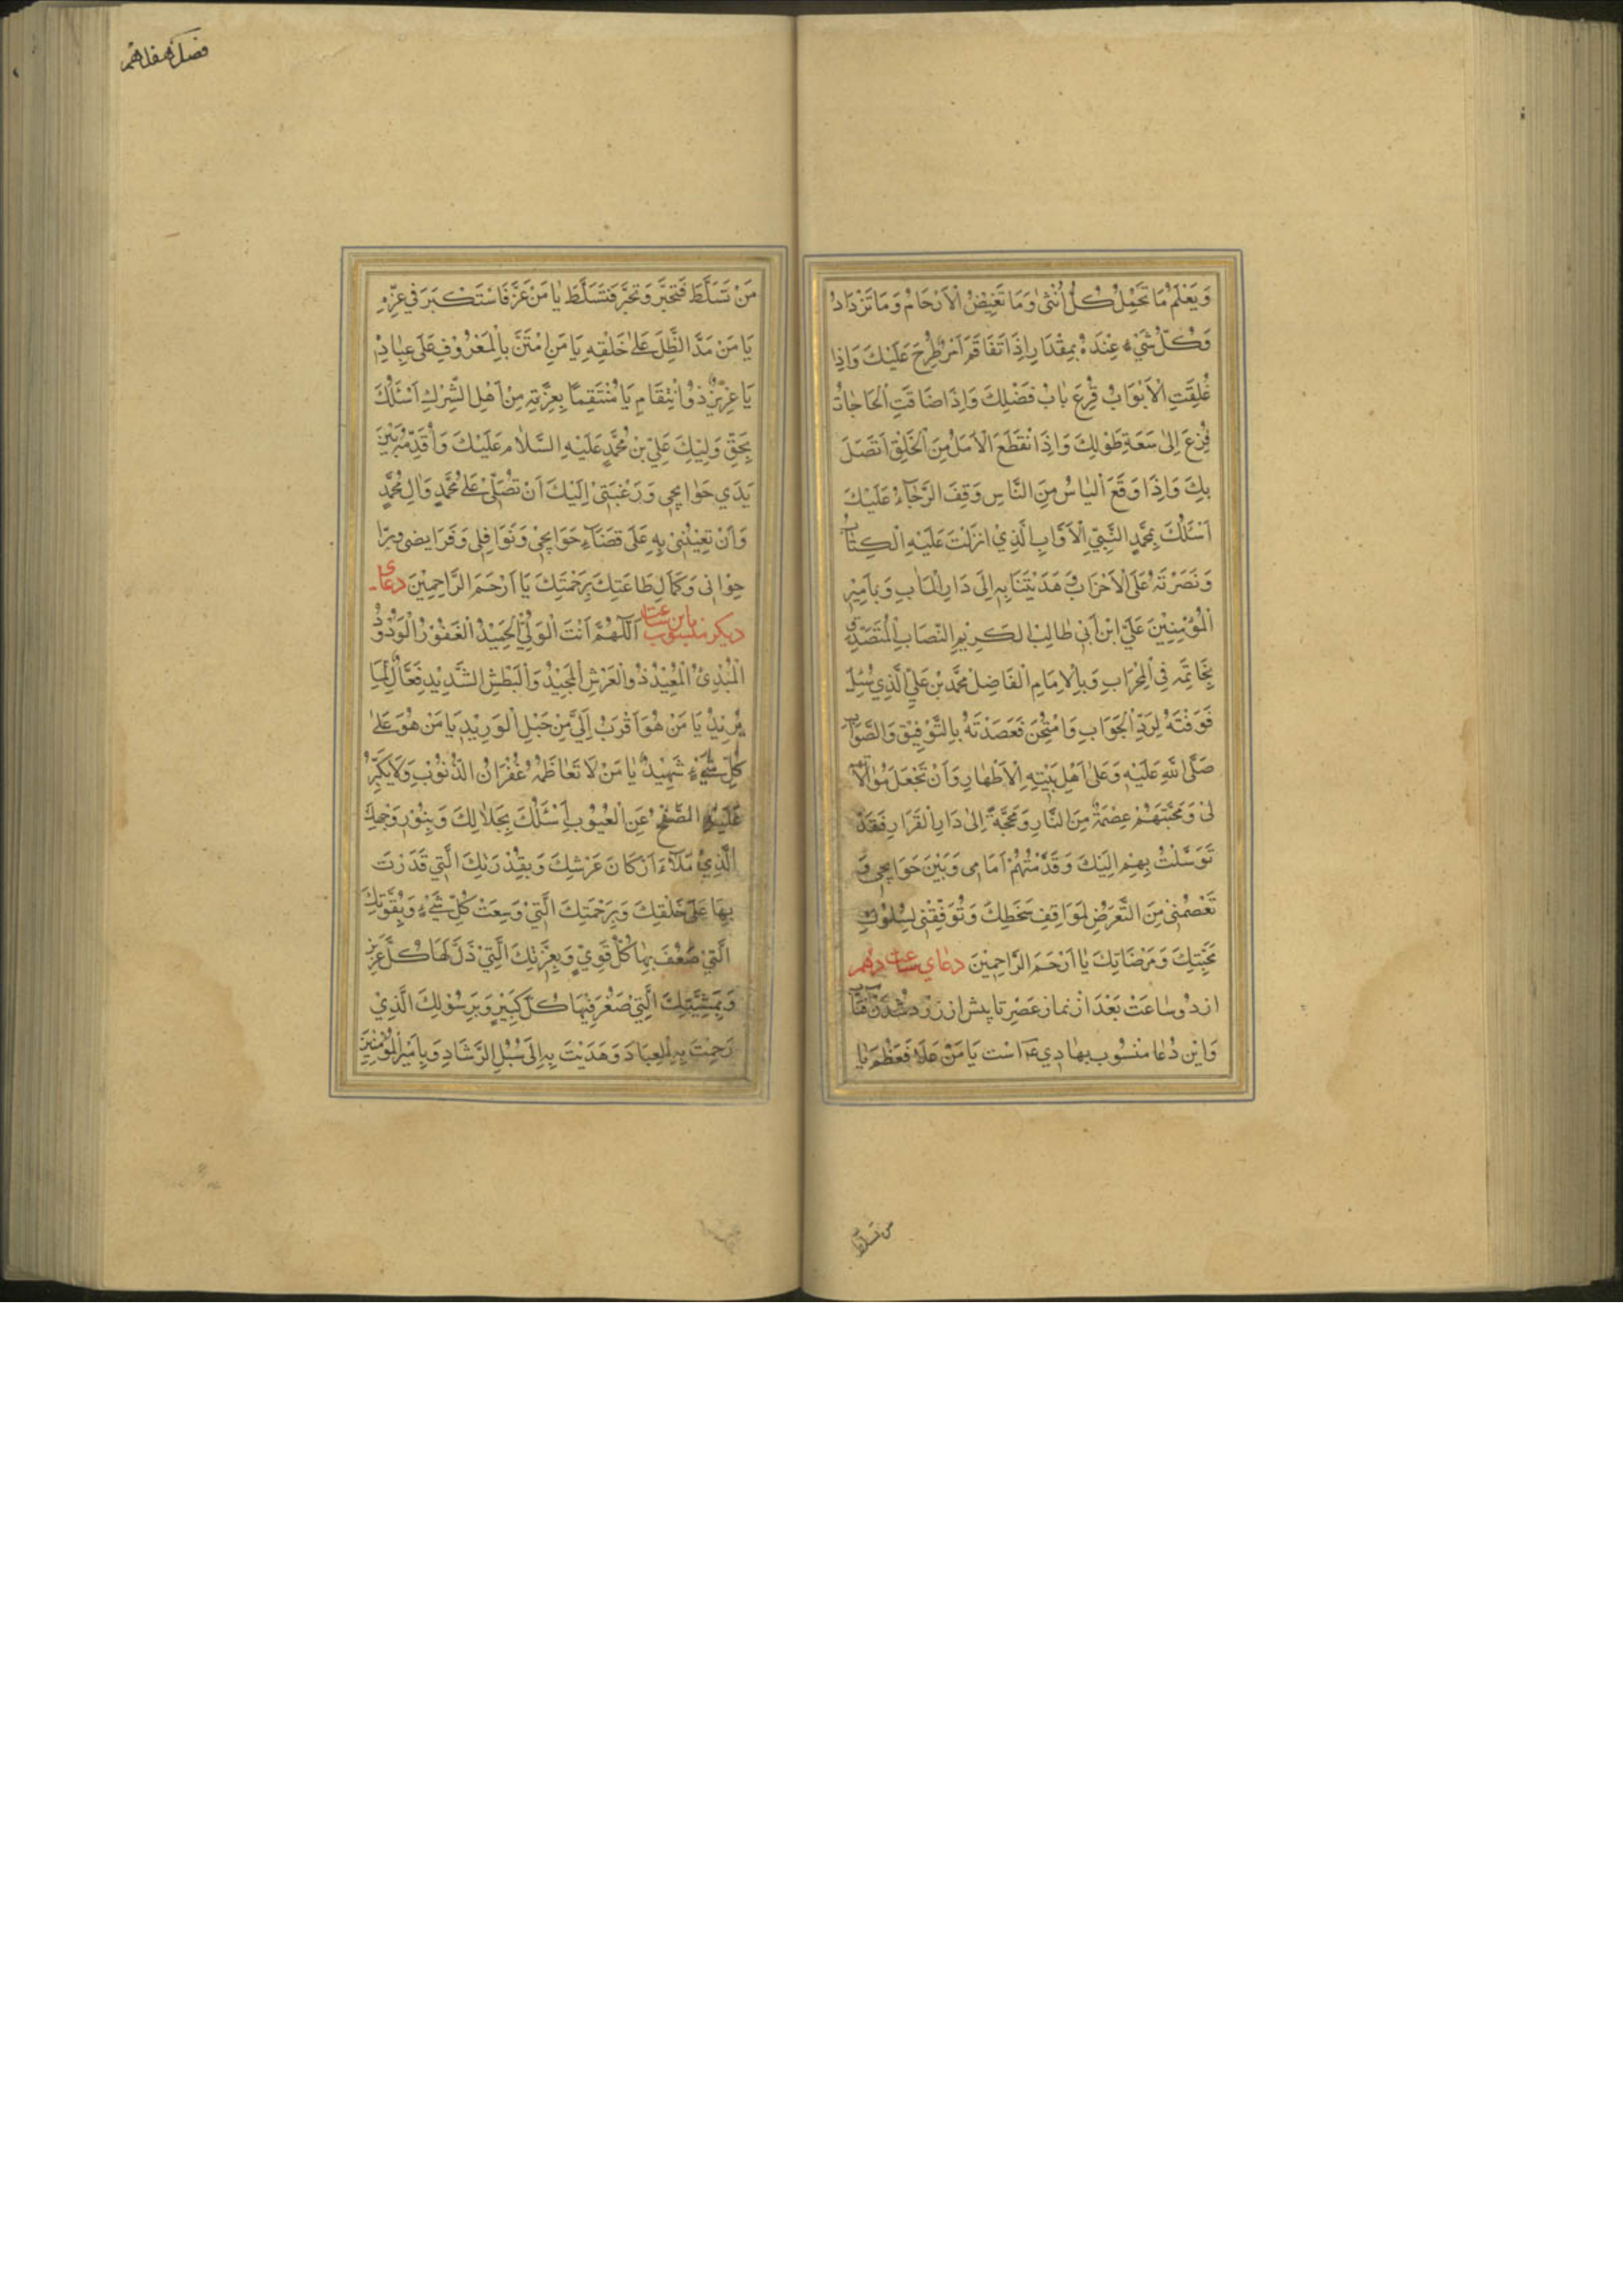 وَيَعْلَمُ مَا تَحْمِلُ كُلُّ اُنْثىٰ وَمَا تَغِيْضُ الْاَرْحَامُ وَمَا تَزْدَادُ
وَكُلُّ شَيْءٍ عِنْدَهُ بِمِقْدَارٍ اِذَا تَفَاقَمَ اَمْرٌ طُرِحَ عَلَيْكَ وَاِذَا
غُلِقَتِ الْاَبْوَابُ قُرِعَ بَابُ فَضْلِكَ وَاِذَا ضَاقَتِ الْحَاجَاتُ
فُزِعَ اِلىٰ سَعَةِ طَوْلِكَ وَاِذَا انْقَطَعَ الْاَمَلُ مِنَ الْخَلْقِ اتَّصَلَ
بِكَ وَاِذَا وَقَعَ الْيَاْسُ مِنَ النَّاسِ وَقِفَ الرَّجَاءُ عَلَيْكَ
اَسْئَلُكَ بِمُحَمَّدٍ النَّبِيِّ الْاَوَّابِ الَّذِيْ انْزَلْتَ عَلَيْهِ الْكِتَابَ
وَنَصَرْتَهُ عَلَى الْاَحْزَابِ وَ هَدَيْتَنَا بِهِ اِلَى دَارِ الْمَاٰبِ وَبِاَمِيْرِ
الْمُؤْمِنِيْنَ عَلِيِّ ابْنِ اَبِيْ طَالِبٍ الْكَرِيْمِ النِّصَابِ الْمُتَصَدِّقِ
بِخَاتَمِهِ فِي الْمِحْرَابِ وَبِالْاِمَامِ الْفَاضِلِ مُحَمَّدِ بْنِ عَلِيٍّ الَّذِي سُئِلَ
فَوَفَّقْتَهُ لِرَدِّ الْجَوَابِ وَامْتُحِنَ فَعَضَدْتَهُ بِالتَّوْفِيْقِ وَالصَّوَابِ
صَلَّى اللّٰهُ عَلَيْهِ وَعَلىٰ اَهْلِ بَيْتِهِ الْاَطْهَارِ وَاَنْ تَجْعَلَ مُوَالَاتَهُمْ
لِيْ وَمَحَبَّتَهُمْ عِصْمَةً مِنَ النَّارِ وَمَحَجَّةً اِلىٰ دَارِ الْقَرَارِ فَقَدْ
تَوَسَّلْتُ بِهِمْ اِلَيْكَ وَقَدَّمْتُهُمْ اَمَامِى وَبَيْنَ حَوَايِجِى وَ
تَعْصِمُنِيْ مِنَ التَّعَرُّضِ لِمَوَاقِفِ سَخَطِكَ وَتُوَفِّقَنِيْ لِسُلُوْكِ
مَحَبَّتِكَ وَمَرْضَاتِكَ يَا اَرْحَمَ الرَّاحِمِيْنَ دعاى ساعت دهم
از دو ساعت بعد از نماز عصر تا پيش از زرد شدن آفتاب
و اين دعا منسوب بهادي ع است يَا مَنْ عَلَا فَعَظُمَ يَا
من تسلّط
فصل هفدهم
مَنْ تَسَلَّطَ فَتَجَبَّرَ وَتَجَبَّرَ فَتَسَلَّطَ يَا مَنْ عَزَّ فَاسْتَكْبَرَ فِي عِزِّهِ
يَا مَنْ مَدَّ الظِّلَّ عَلىٰ خَلْقِهِ يَا مَنِ امْتَنَّ بِالْمَعْرُوْفِ عَلَى عِبَادِهِ
يَا عَزِيْزُ ذُو انْتِقَامٍ يَا مُنْتَقِمًا بِعِزَّتِهِ مِنْ اَهْلِ الشِّرْكِ اَسْئَلُكَ
بِحَقِّ وَلِيِّكَ عَلِيِّ بْنِ مُحَمَّدٍ عَلَيْهِ السَّلَام عَلَيْكَ وَاُقَدِّمُهُ بَيْنَ
يَدَي حَوَايِجِي وَرَغْبَتِيْ اِلَيْكَ اَنْ تُصَلِّيَ عَلىٰ مُحَمَّدٍ وَاٰلِ مُحَمَّدٍ
وَاَنْ تُعِيْنَنِيْ بِهِ عَلَى قَضَاءِ حَوَايِجِي وَنَوَافِلِي وَفَرَايِضِى وبِرّ ا
خْوَانِى وَكَمَالِ طَاعَتِكَ بِرَحْمَتِكَ يَا اَرْحَمَ الرَّاحِمِيْنَ دعاى
ديكر منسوب باين ساعت اَللّٰهُمَّ اَنْتَ الْوَلِيُّ الْحَمِيْدُ الْغَفُوْرُ الْوَدُوْدُ
الْمُبْدِئُ الْمُعِيْدُ ذُو الْعَرْشِ الْمَجِيْدُ وَالْبَطْشِ الشَّدِيْدِ فَعَّالٌ لِمَا
يُرِيْدُ يَا مَنْ هُوَ اَقْرَبُ اِلَيَّ مِنْ حَبْلِ الْوَرِيْدِ يَا مَنْ هُوَ عَلىٰ
كُلِّ شَيْءٍ شَهِيْدٌ يَا مَنْ لَا تَعَاظَمُهُ غُفْرَانُ الذُّنُوْبِ وَلَا يَكْبُرُ
عَلَيْهِ الصَّفْحُ عَنِ الْعُيُوْبِ اَسْئَلُكَ بِجَلَالِكَ وَبِنُوْرِ وَجْهِكَ
الَّذِيْ مَلَاَءَ اَرْكَانَ عَرْشِكَ وَبِقُدْرَتِكَ الَّتِي قَدَرْتَ
بِهَا عَلَى خَلْقِكَ وَبِرَحْمَتِكَ الَّتِيْ وَسِعَتْ كُلَّ شَيْءٍ وَبِقُوَّتِكَ
الَّتِيْ ضَعُفَ بِهَا كُلُّ قَوِيٍّ وَبِعِزَّتِكَ الَّتِيْ ذَلَّ لَهَا كُلُّ عَزِيْزٍ
وَبِمَشِيَّتِكَ الَّتِيْ صَغُرَ فِيْهَا كُلُّ كَبِيْرٍ وَبِرَسُوْلِكَ الَّذِيْ
رَحِمْتَ بِهِ الْعِبَادَ وَهَدَيْتَ بِهِ اِلَى سُبُلِ الرَّشَادِ وَبِاَمِيْرِ الْمُؤْمِنِيْنَ